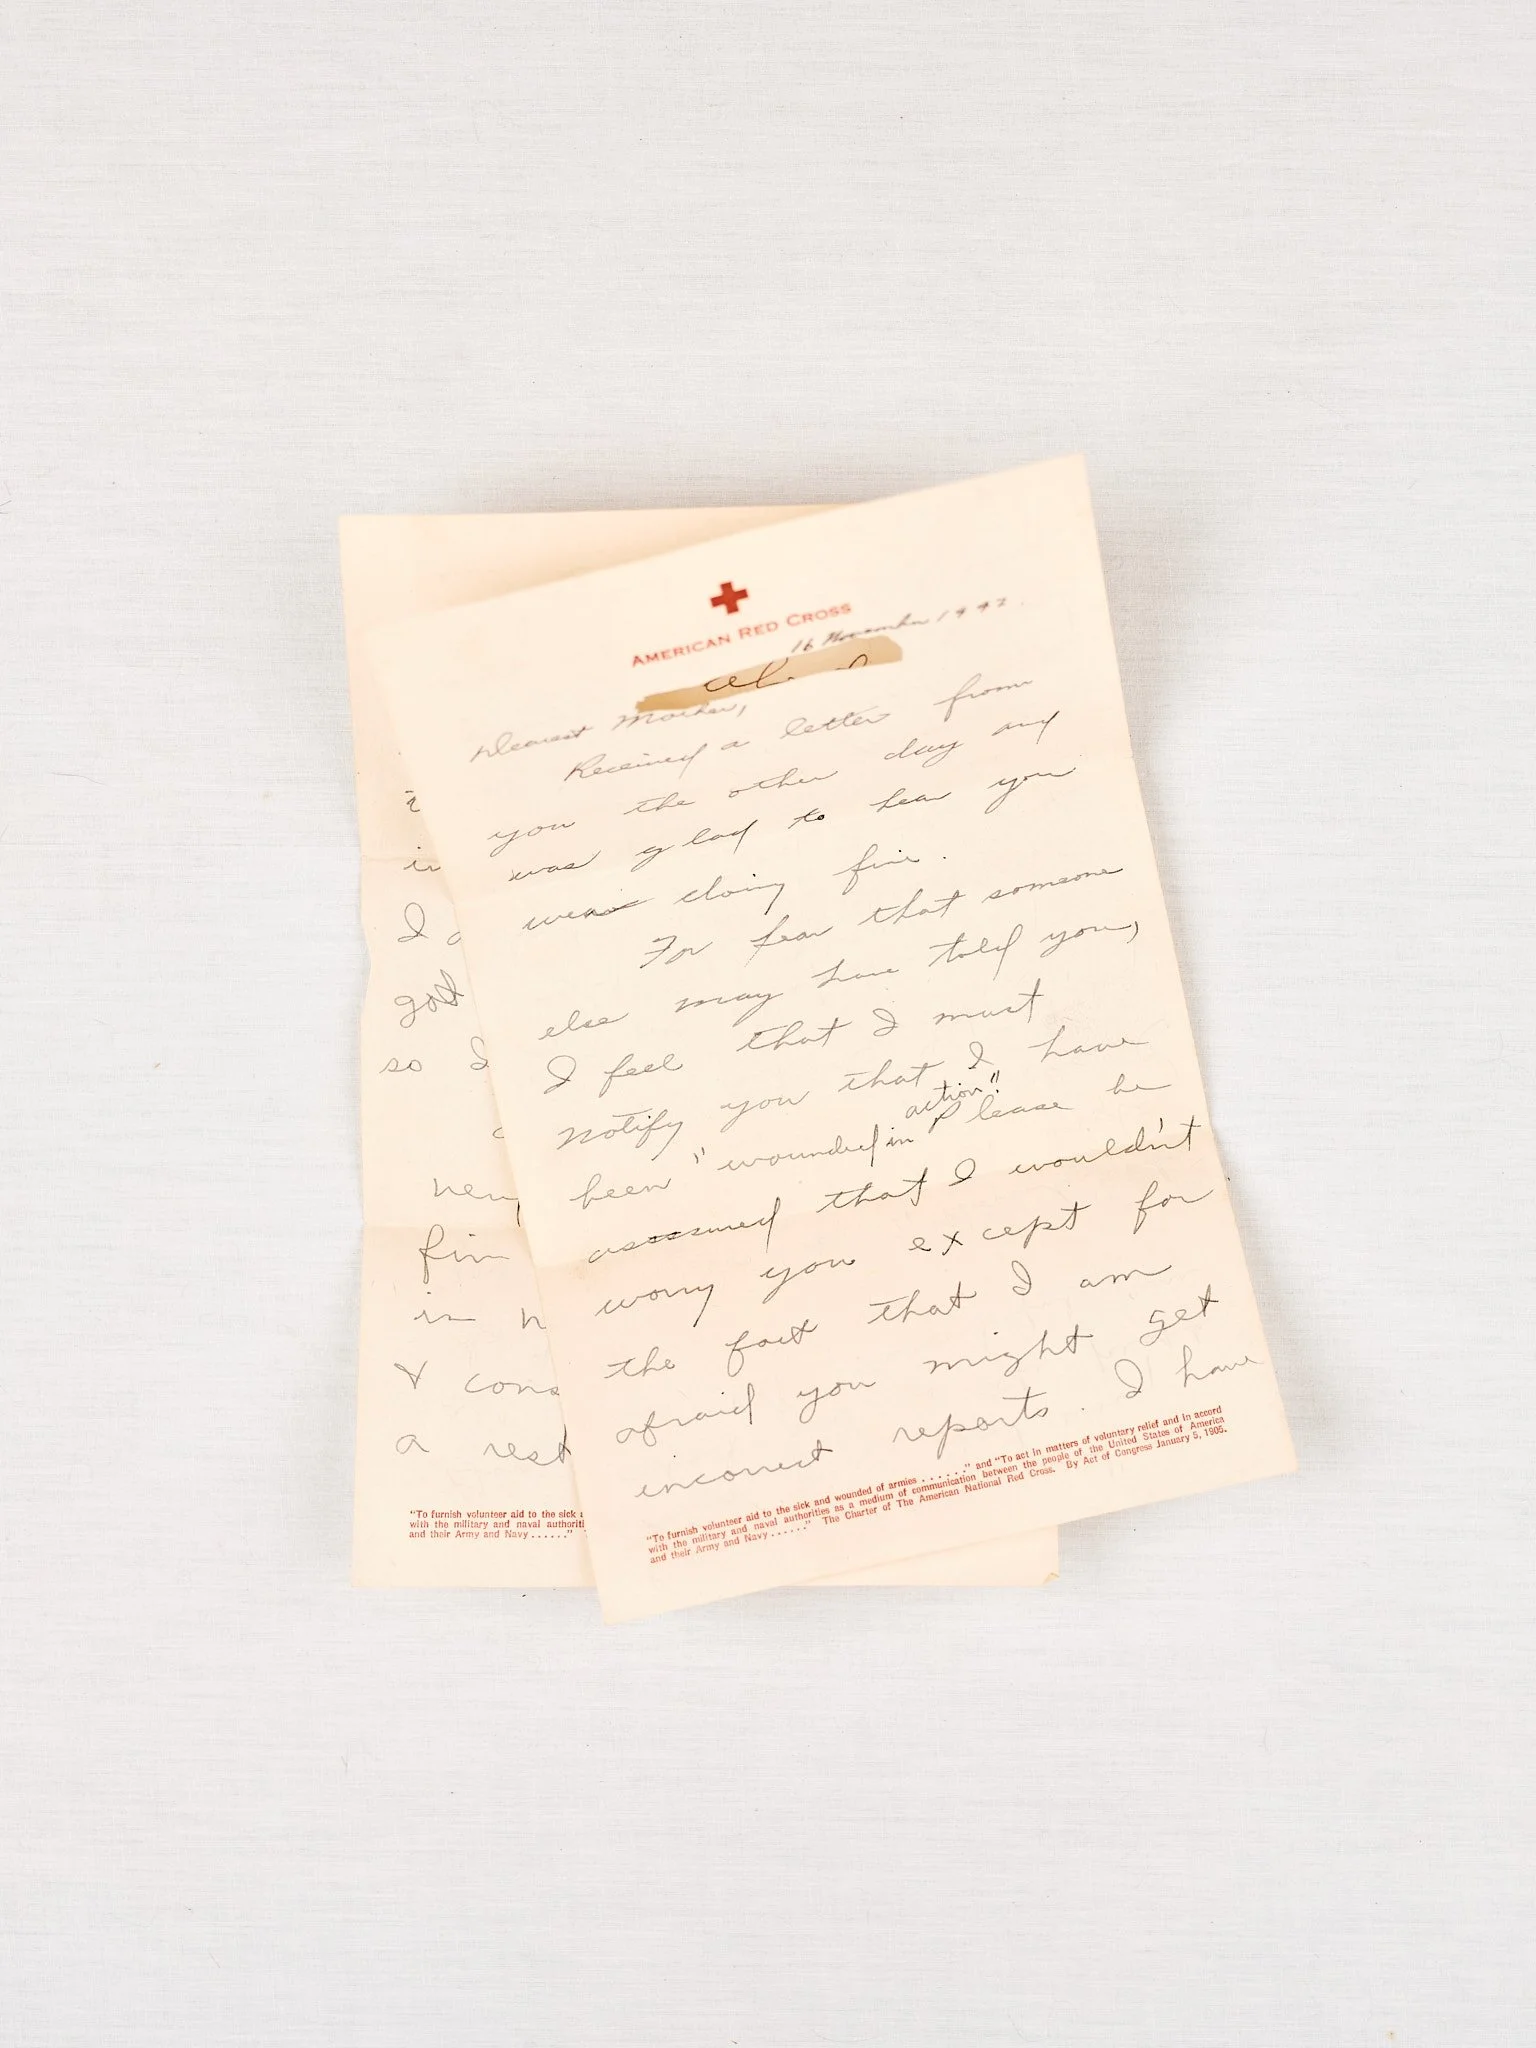 AMERICAN RED CROSS
16 November 1942
Dearest Mother,
Received a letter from
you the other day and
was glad to hear you
were doing fine.
For fear that someone
else may have told you,
I feel that I must
notify you that I have
action".
been "wounded in Please be
assured that I wouldn't
worry you except for
the fact that I am
afraid you might get
incorrect reports. I have
"To furnish volunteer aid to the sick and wounded of armies ......" and "To act in matters of voluntary relief and in accord
with the military and naval authorities as a medium of communication between the people of the United States of America
and their Army and Navy ......" The Charter of The American National Red Cross. By Act of Congress January 5, 1905.
I
got
so I
in
& cons
a rest
"To furnish volunteer aid to the sick
with the military and naval authoriti
and their Army and Navy ......"